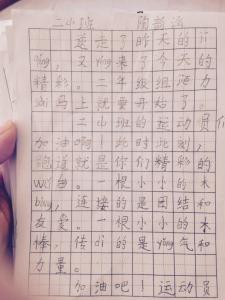 二小班
送走了昨天的
yíng,又yíng来了今天的
精彩。二年级组接力
sài马上就要开始了。
二小班的运动员们
加油啊!此时此刻,
跑道就是你们精彩的
wǔ台。一根小小的木
bàng,连接的是团结和
友爱。一根小小的木
棒,传dì的是yǒng气和
力量。
加油吧!运动员